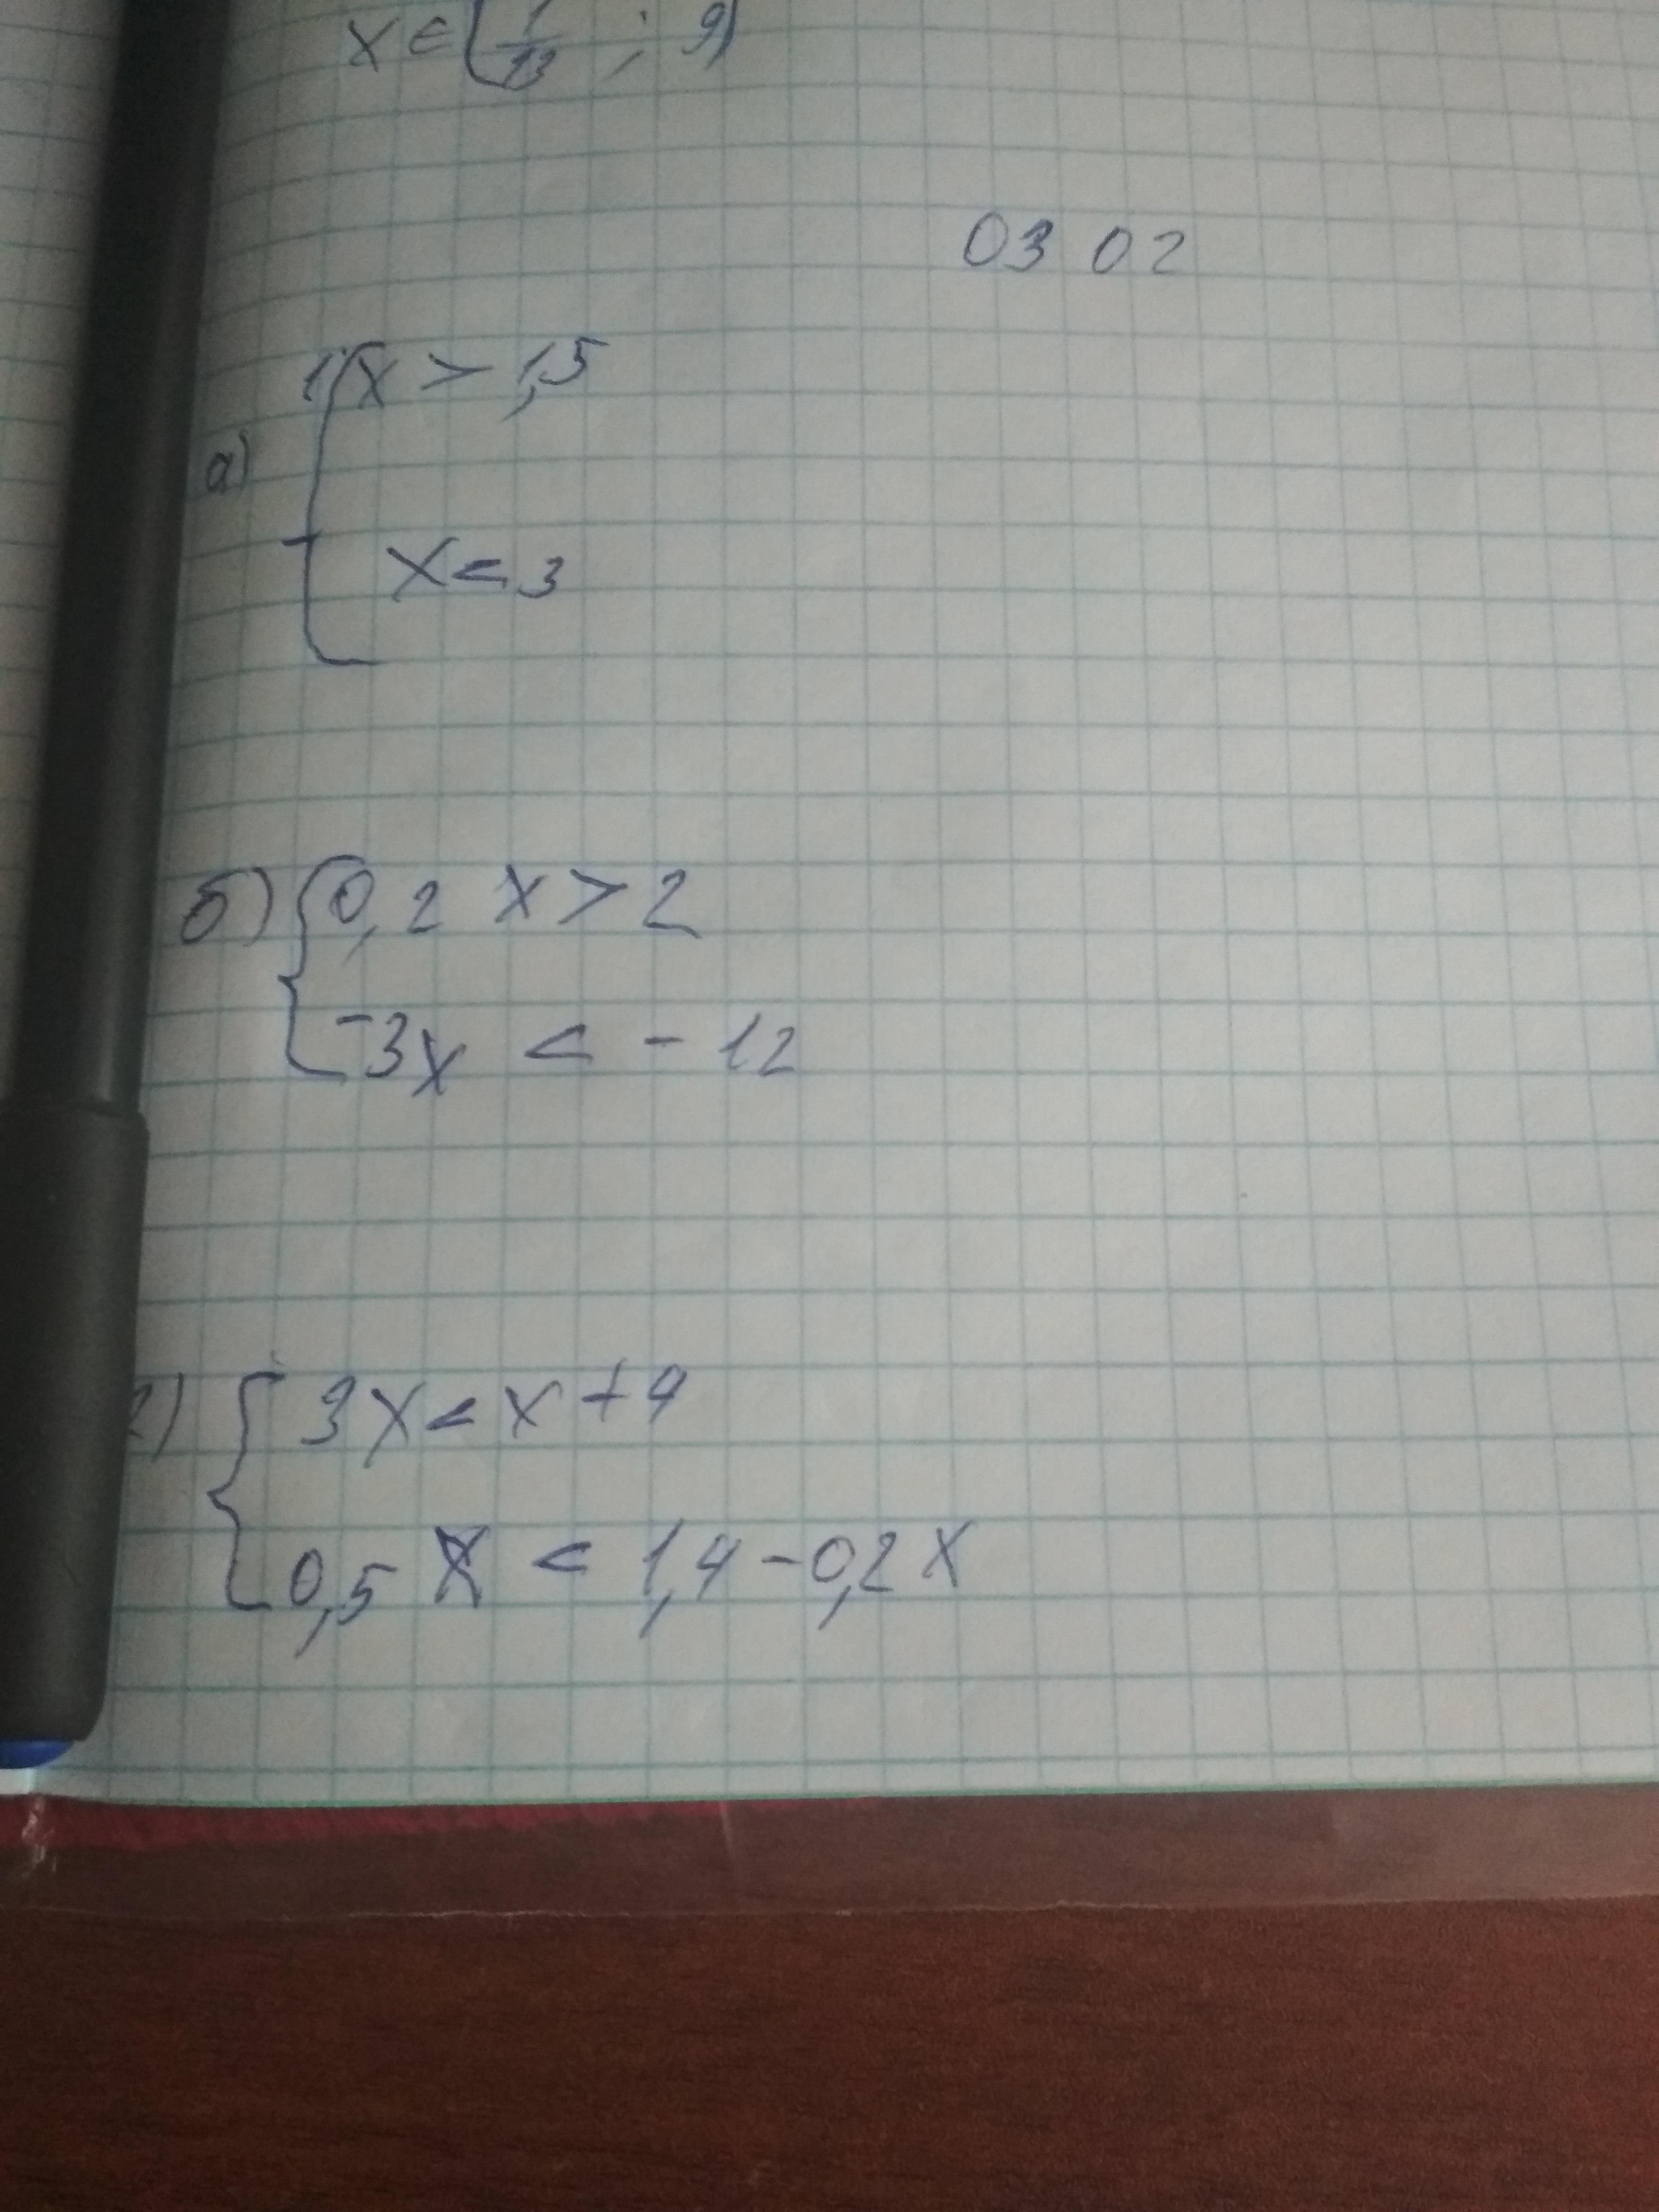 x ∈ (1/13 ; 9)
03 02
а) { x > 1,5
x < 3
б) { 0,2 x > 2
-3x < - 12
г) { 3x < x + 4
0,5 x < 1,4 - 0,2 x